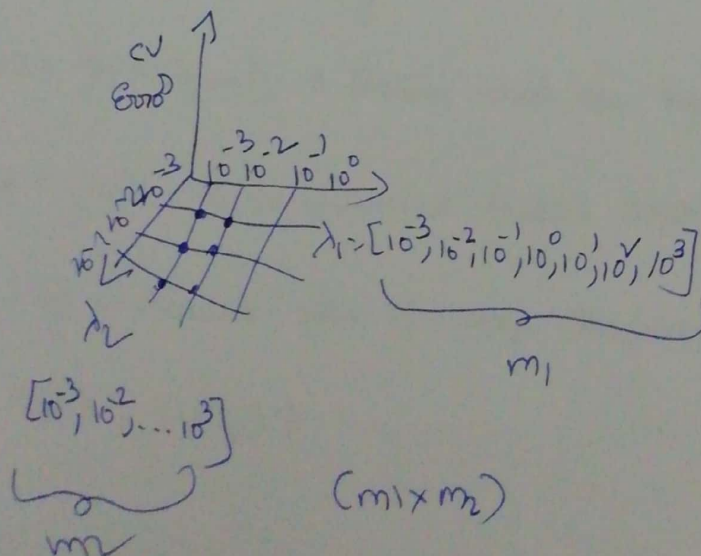 CV
Error
10^-3 10^-2 10^-1 10^0
10^-3
10^-2
10^-1
λ1 = [10^-3, 10^-2, 10^-1, 10^0, 10^1, 10^2, 10^3]
m1
λ2
[10^-3, 10^-2, ... 10^3]
m2
(m1 × m2)